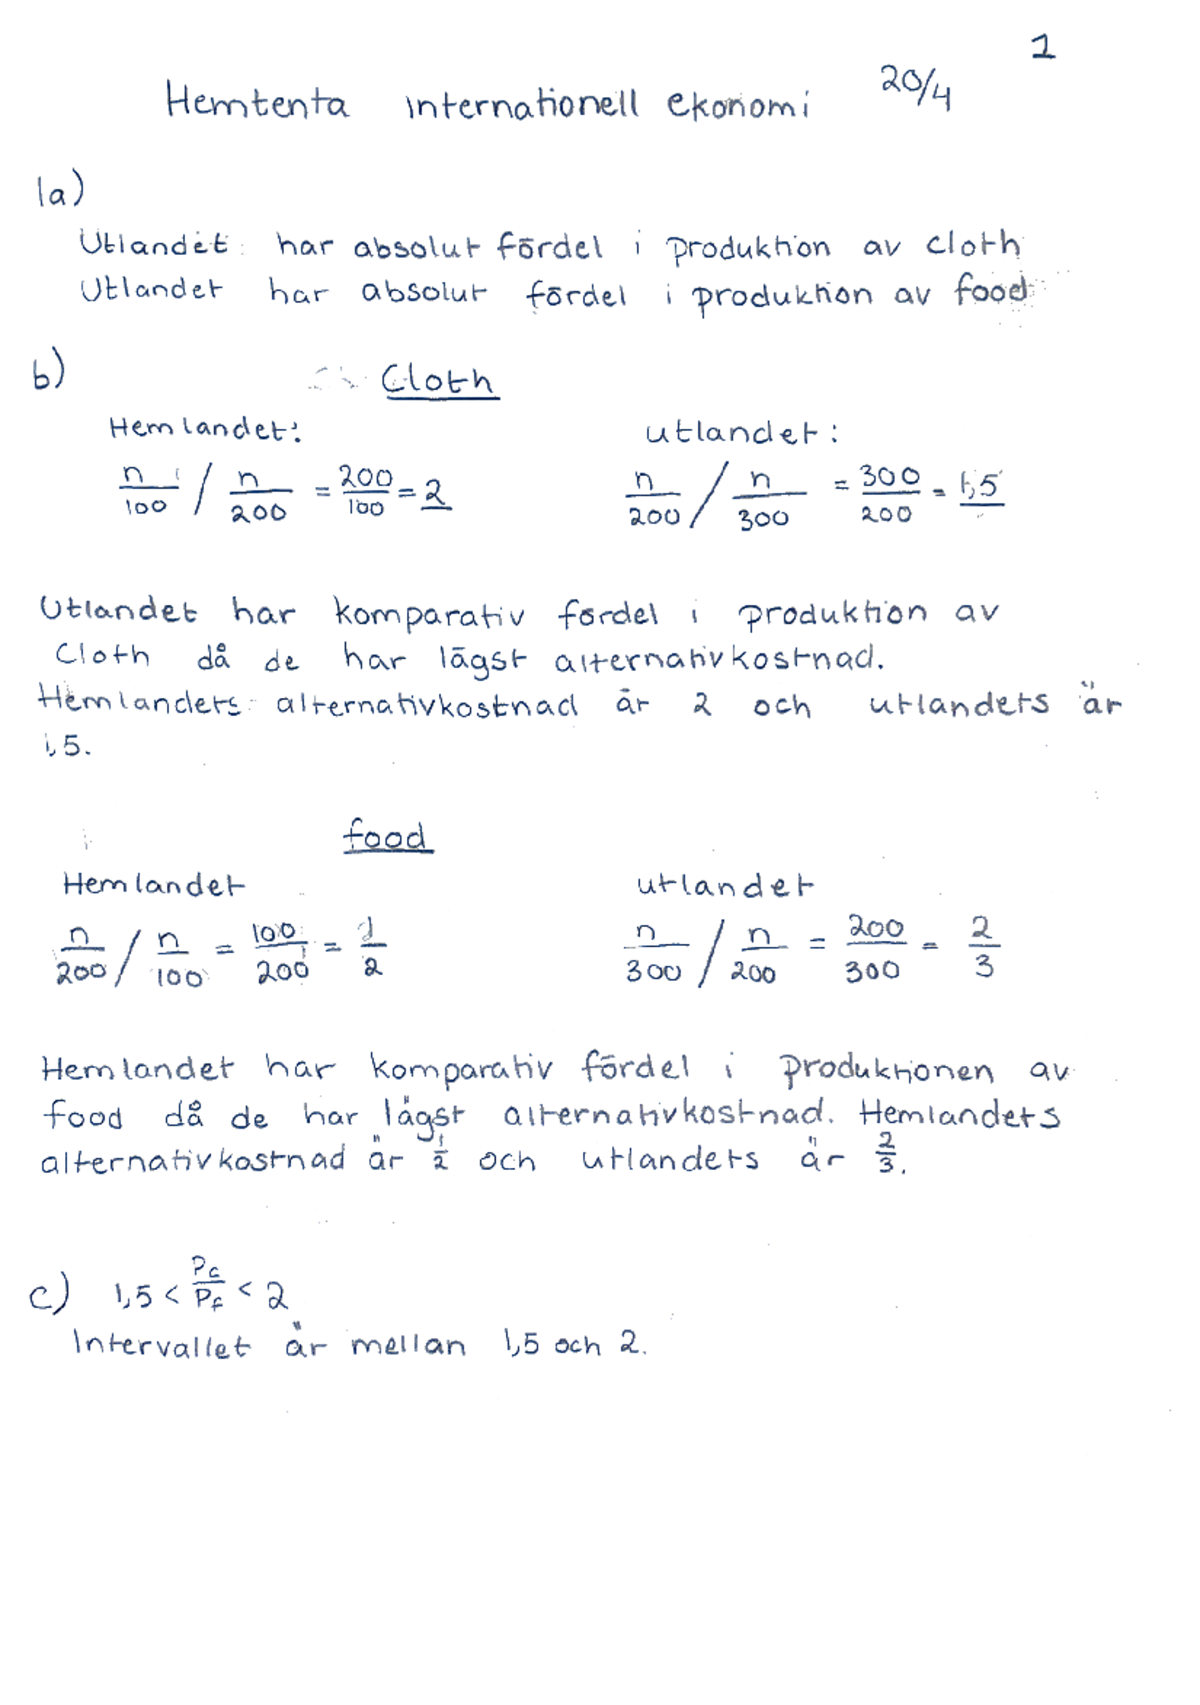 1
Hemtenta internationell ekonomi 20/4
1a)
Utlandet har absolut fördel i produktion av cloth
Utlandet har absolut fördel i produktion av food
b) Cloth
Hemlandet: utlandet:
n/100 / n/200 = 200/100 = 2 n/200 / n/300 = 300/200 = 1,5
Utlandet har komparativ fördel i produktion av
Cloth då de har lägst alternativkostnad.
Hemlandets alternativkostnad är 2 och utlandets är
1,5.
food
Hemlandet utlandet
n/200 / n/100 = 100/200 = 1/2 n/300 / n/200 = 200/300 = 2/3
Hemlandet har komparativ fördel i produktionen av
food då de har lägst alternativkostnad. Hemlandets
alternativkostnad är 1/2 och utlandets är 2/3.
c) 1,5 < Pc/PF < 2
Intervallet är mellan 1,5 och 2.